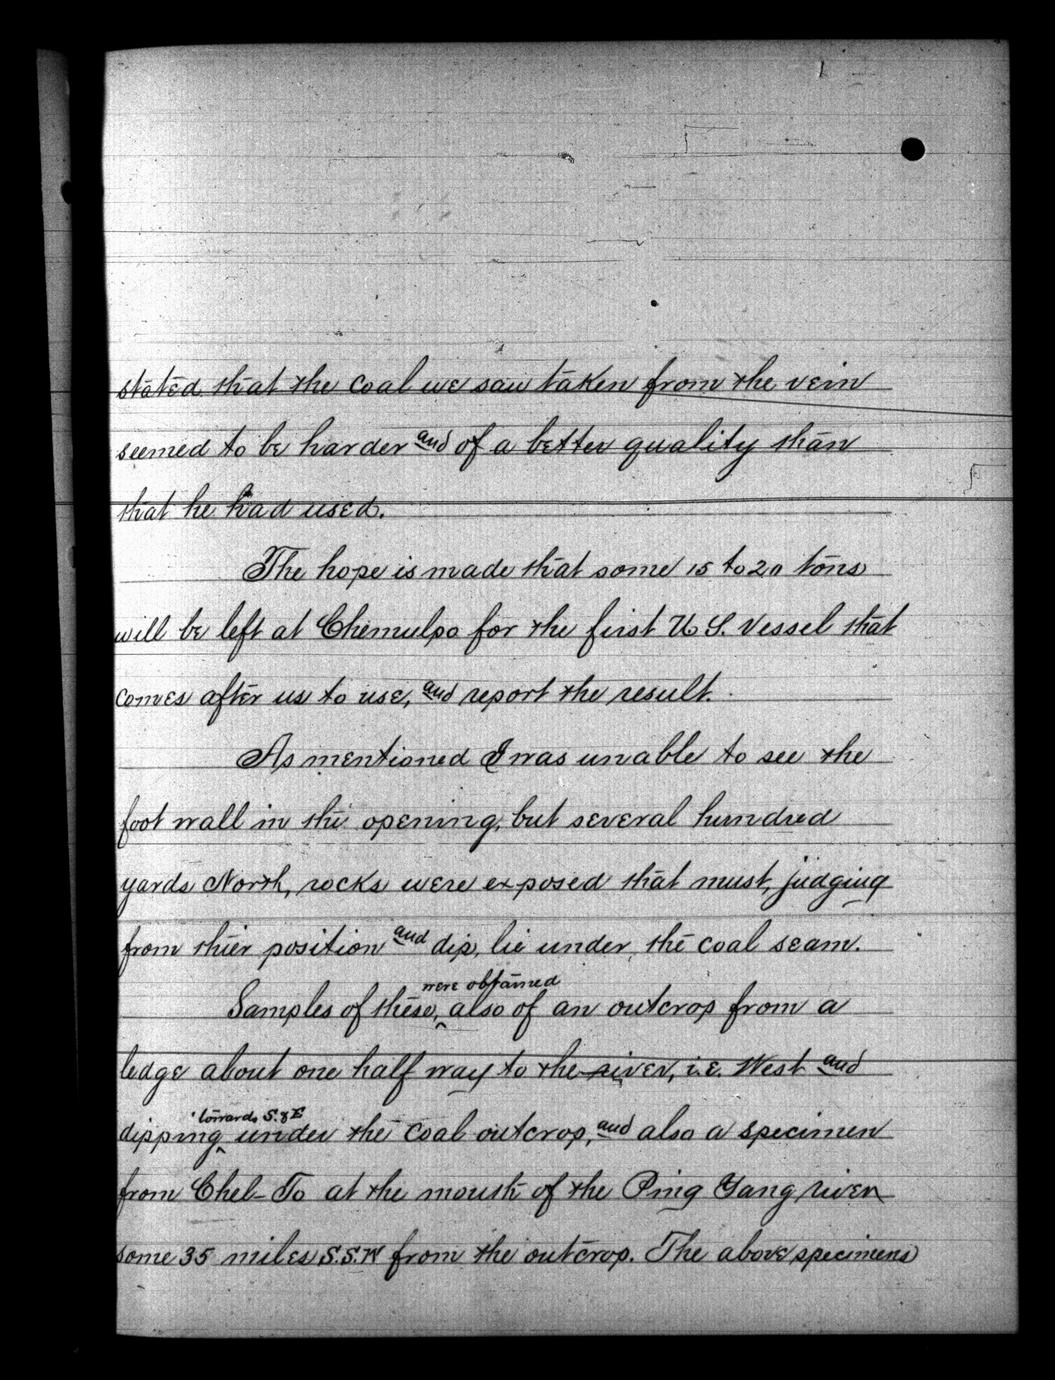 stated that the coal we saw taken from the vein
seemed to be harder and of a better quality than
that he had used.
The hope is made that some 15 to 20 tons
will be left at Chemulpo for the first U S. Vessel that
comes after us to use, and report the result.
As mentioned I was unable to see the
foot wall in the opening, but several hundred
yards North, rocks were exposed that must, judging
from thier position and dip, lie under, the coal seam.
were obtained
Samples of these, also of an outcrop from a
ledge about one half way to the river, i.e. West and
towards S. & E
dipping under the coal outcrop, and also a specimen
from Chel-To at the mouth of the Ping Yang river
some 35 miles S.S.W from the outcrop. The above specimens